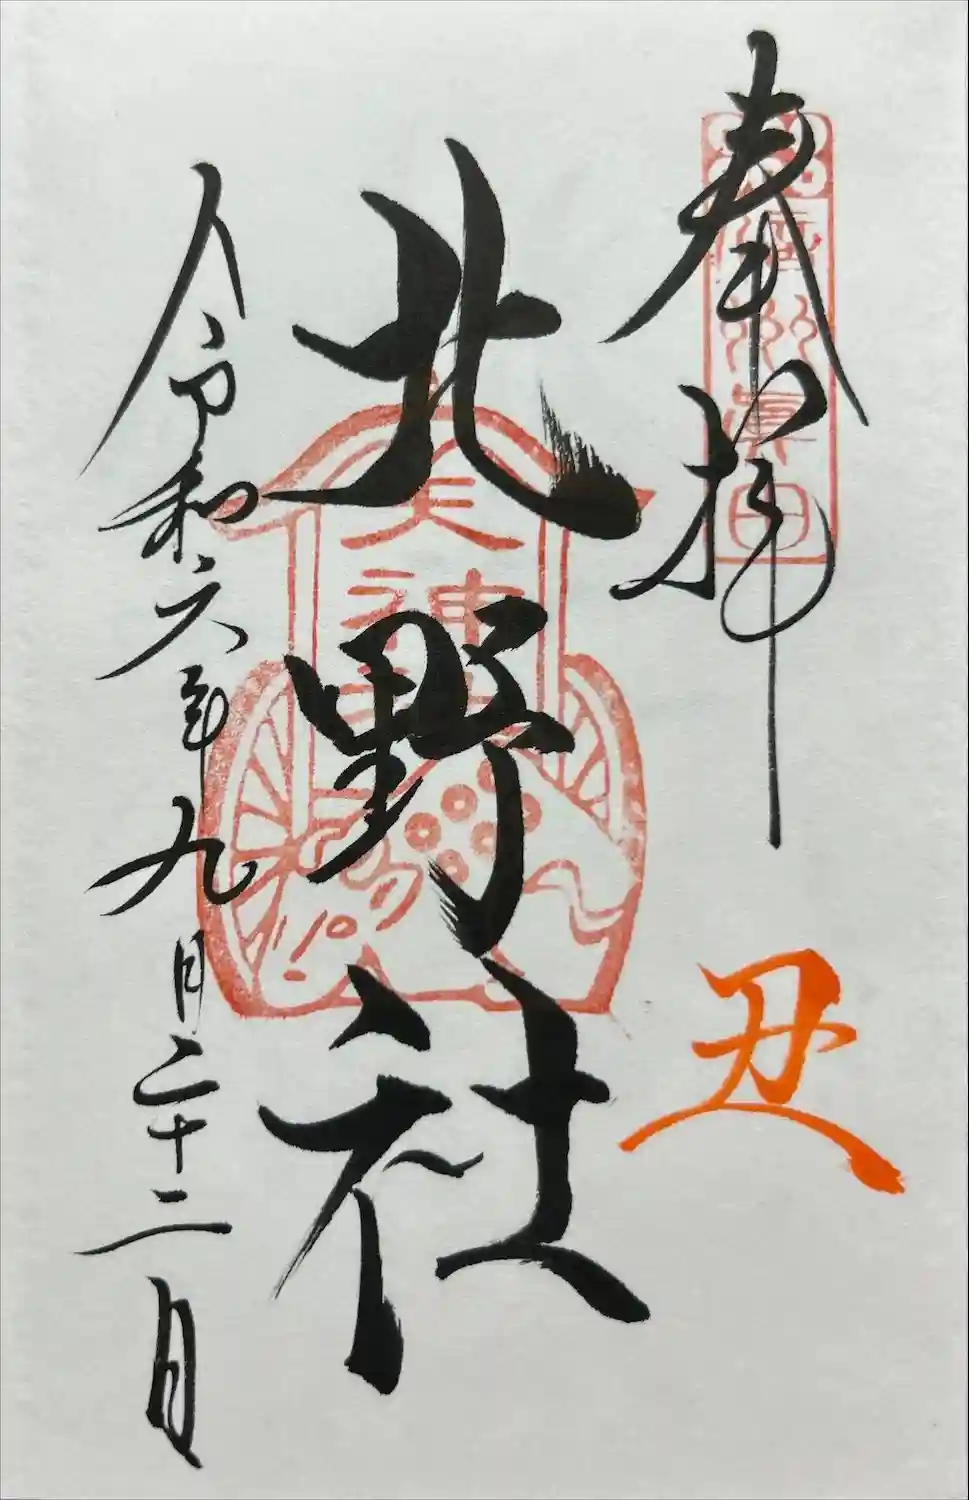 奉拝
信州真田
丑
北野社
天神
令和六年九月二十二日